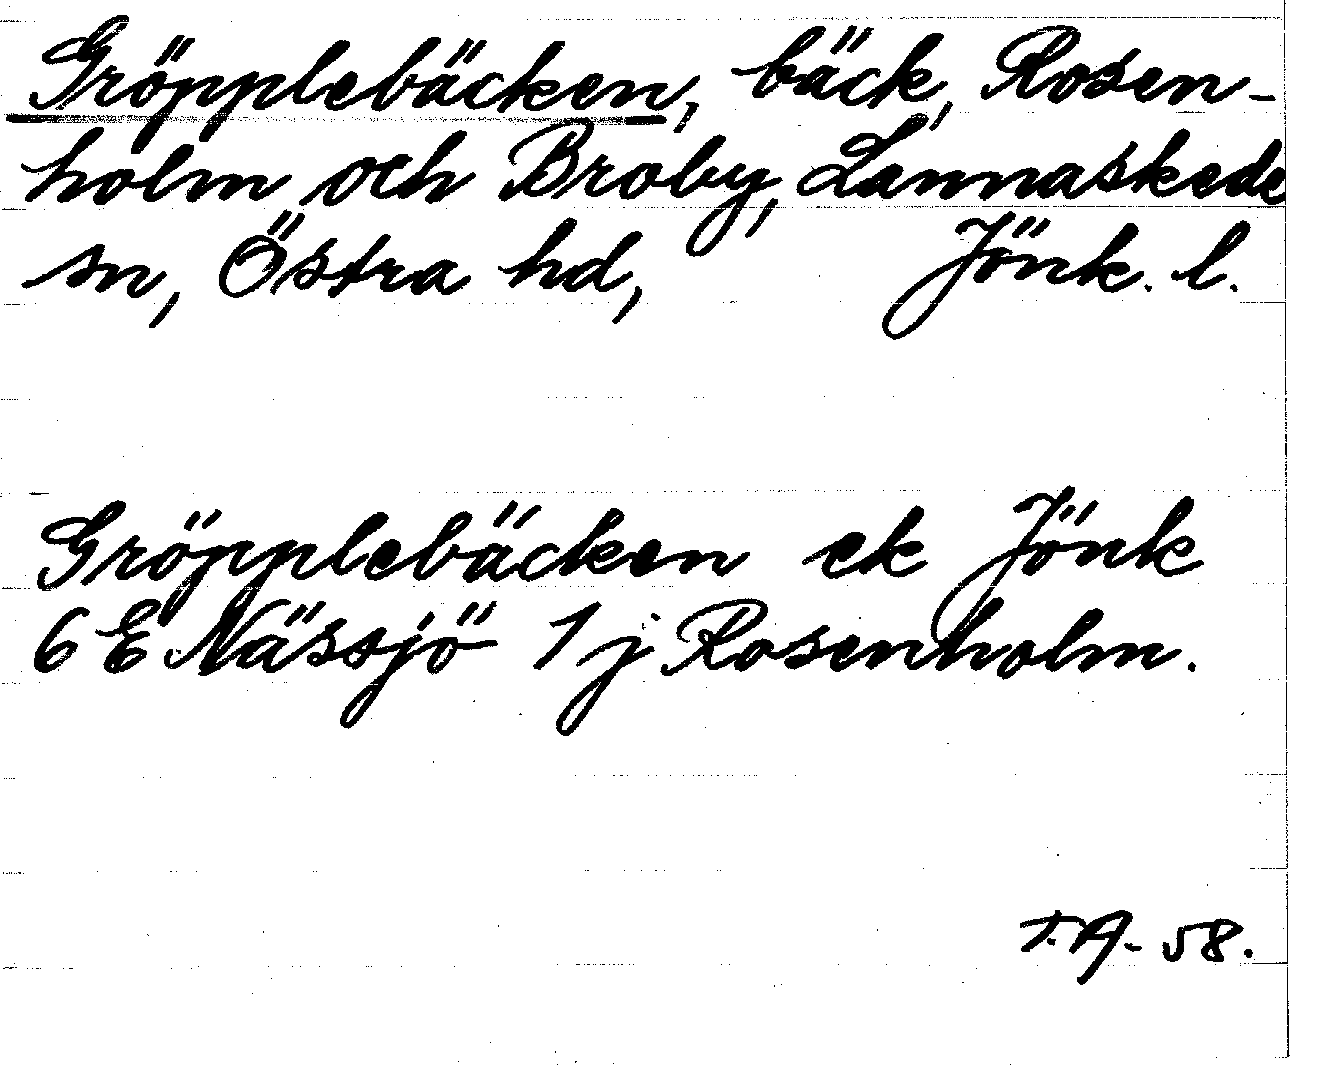 Gröpplebäcken, bäck, Rosen-
holm och Broby, Lannaskede
sn, Östra hd, Jönk. l.
Gröpplebäcken ek Jönk
6 E Nässjö 1 j Rosenholm.
T.A- 58.